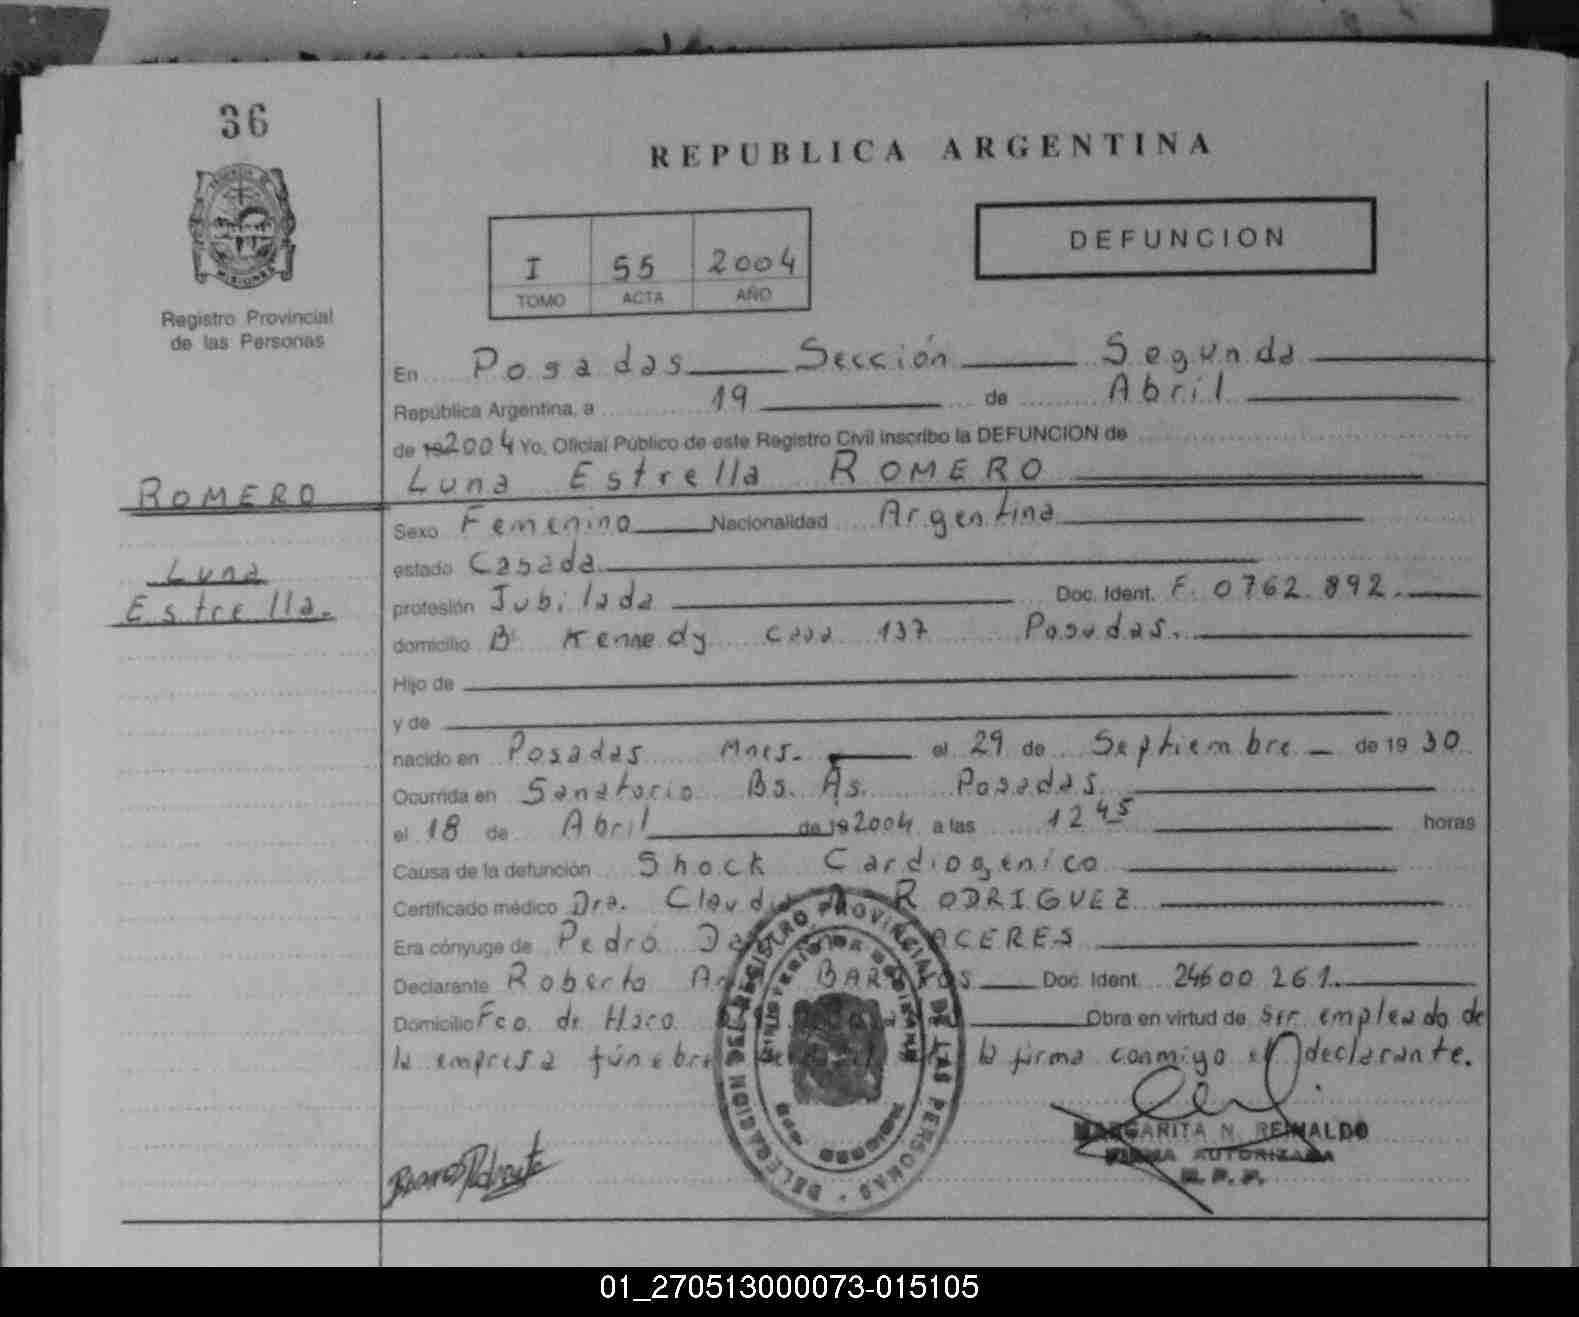 36
REPUBLICA ARGENTINA
DEFUNCION
I 55 2004
TOMO ACTA AÑO
Registro Provincial
de las Personas
En Posadas Sección Segunda
República Argentina, a 19 de Abril
de 2004 Yo, Oficial Público de este Registro Civil inscribo la DEFUNCION de
Luna Estrella ROMERO
ROMERO
Luna
Estrella.
Sexo Femenino Nacionalidad Argentina
estado Casada
profesión Jubilada Doc. Ident. F. 0762.892.
domicilio B Kennedy Casa 137 Posadas.
Hijo de
y de
nacido en Posadas Mnes. el 29 de Septiembre de 1930
Ocurrida en Sanatorio Bs. As. Posadas
el 18 de Abril de 192004 a las 12 45 horas
Causa de la defunción Shock Cardiogenico
Certificado médico Dra. RODRIGUEZ
Era cónyuge de Pedro
Declarante Roberto Doc. Ident. 24600261.
Domicilio Fco. de Haro Obra en virtud de ser empleado de
la empresa la firma conmigo el declarante.
REGISTRO PROVINCIAL DE LAS PERSONAS
MARGARITA N. REINALDO
FIRMA AUTORIZADA
R. P. P.
01_270513000073-015105